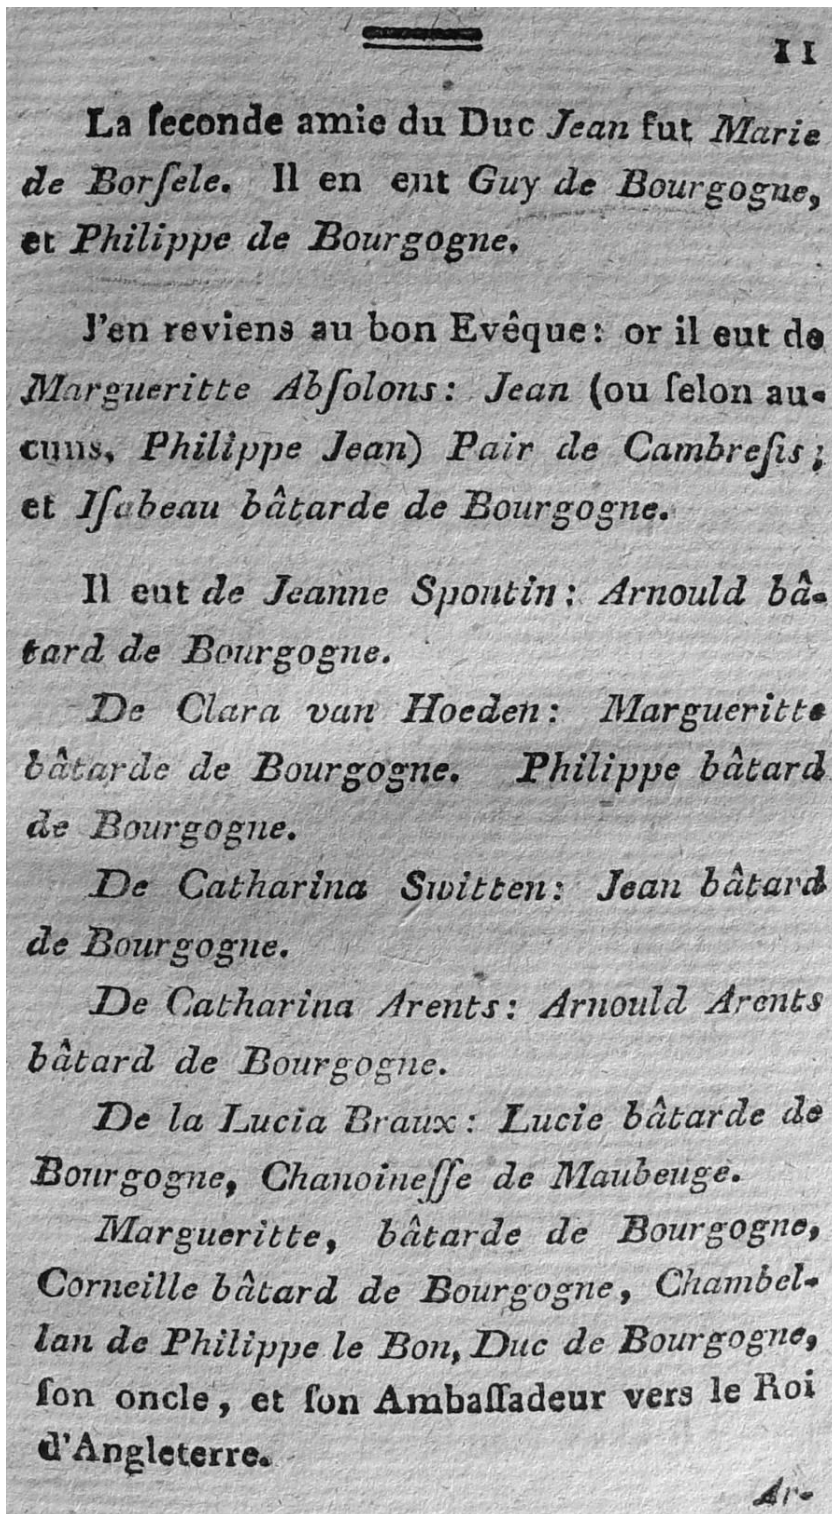 11
La ſeconde amie du Duc Jean fut Marie
de Borſele. Il en eut Guy de Bourgogne,
et Philippe de Bourgogne.
J'en reviens au bon Evêque: or il eut de
Margueritte Abſolons: Jean (ou ſelon au-
cuns, Philippe Jean) Pair de Cambreſis;
et Iſabeau bâtarde de Bourgogne.
Il eut de Jeanne Spontin: Arnould bâ-
tard de Bourgogne.
De Clara van Hoeden: Margueritte
bâtarde de Bourgogne. Philippe bâtard
de Bourgogne.
De Catharina Switten: Jean bâtard
de Bourgogne.
De Catharina Arents: Arnould Arents
bâtard de Bourgogne.
De la Lucia Braux: Lucie bâtarde de
Bourgogne, Chanoineſſe de Maubeuge.
Margueritte, bâtarde de Bourgogne,
Corneille bâtard de Bourgogne, Chambel-
lan de Philippe le Bon, Duc de Bourgogne,
ſon oncle, et ſon Ambaſſadeur vers le Roi
d'Angleterre.
Ar-